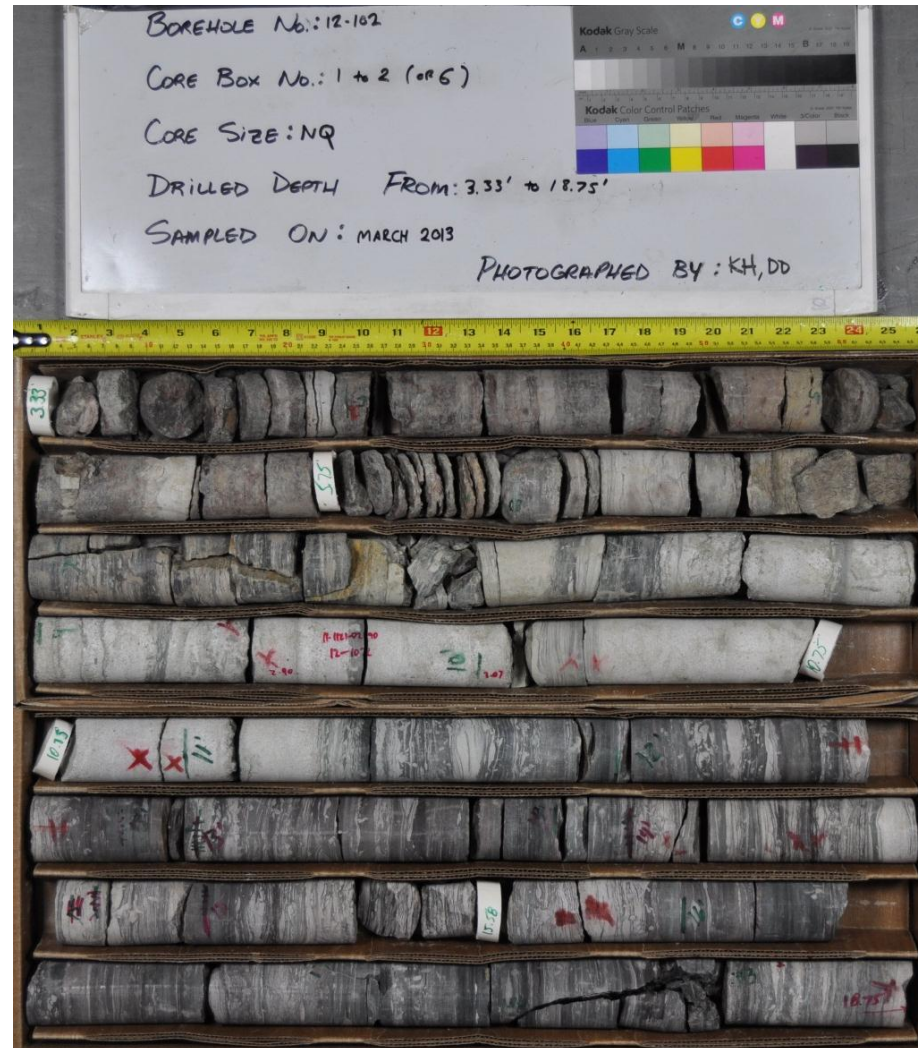 BOREHOLE No.: 12-102
CORE BOX No.: 1 to 2 (OF 6)
CORE SIZE: NQ
DRILLED DEPTH FROM: 3.33' to 18.75'
SAMPLED ON: MARCH 2013
PHOTOGRAPHED BY: KH, DD
Kodak Gray Scale
C Y M
A 1 2 3 4 5 6 M 8 9 10 11 12 13 14 15 B 17 18 19
Kodak Color Control Patches
Blue Cyan Green Yellow Red Magenta White 3/Color Black
1 2 3 4 5 6 7 8 9 10 11 12 13 14 15 16 17 18 19 20 21 22 23 24 25
3.33
5.75
9
12-102
2.90
10'
3.07
10.75
10.75
11'
12'
13
15.58
18.75